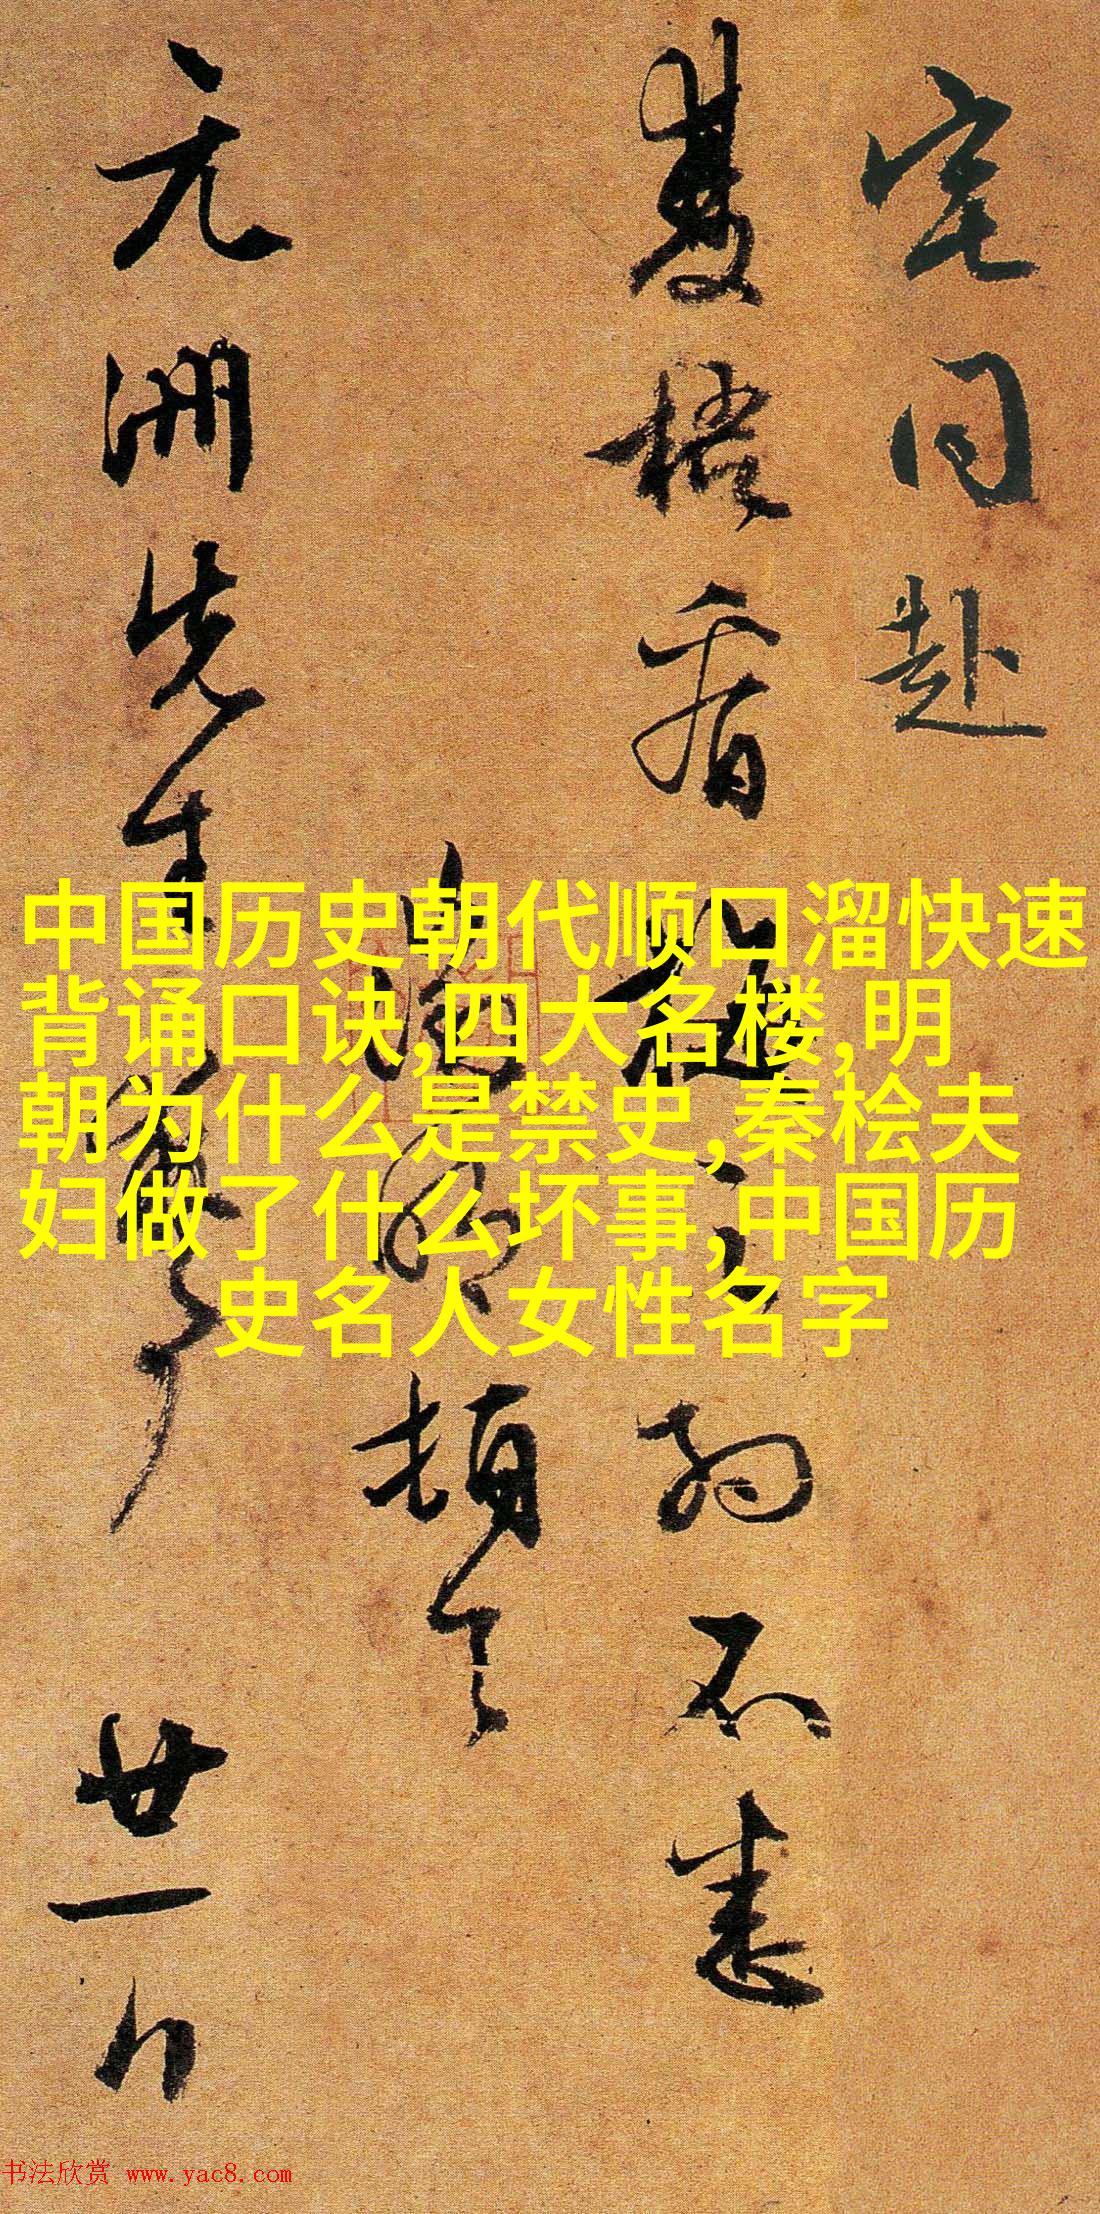 宅同赴
雙梧看之約不悉
明頓首
元洲先生
廿一日
中国历史朝代顺口溜快速
背诵口诀,四大名楼,明
朝为什么是禁史,秦桧夫
妇做了什么坏事,中国历
史名人女性名字
书法欣赏 www.yac8.com